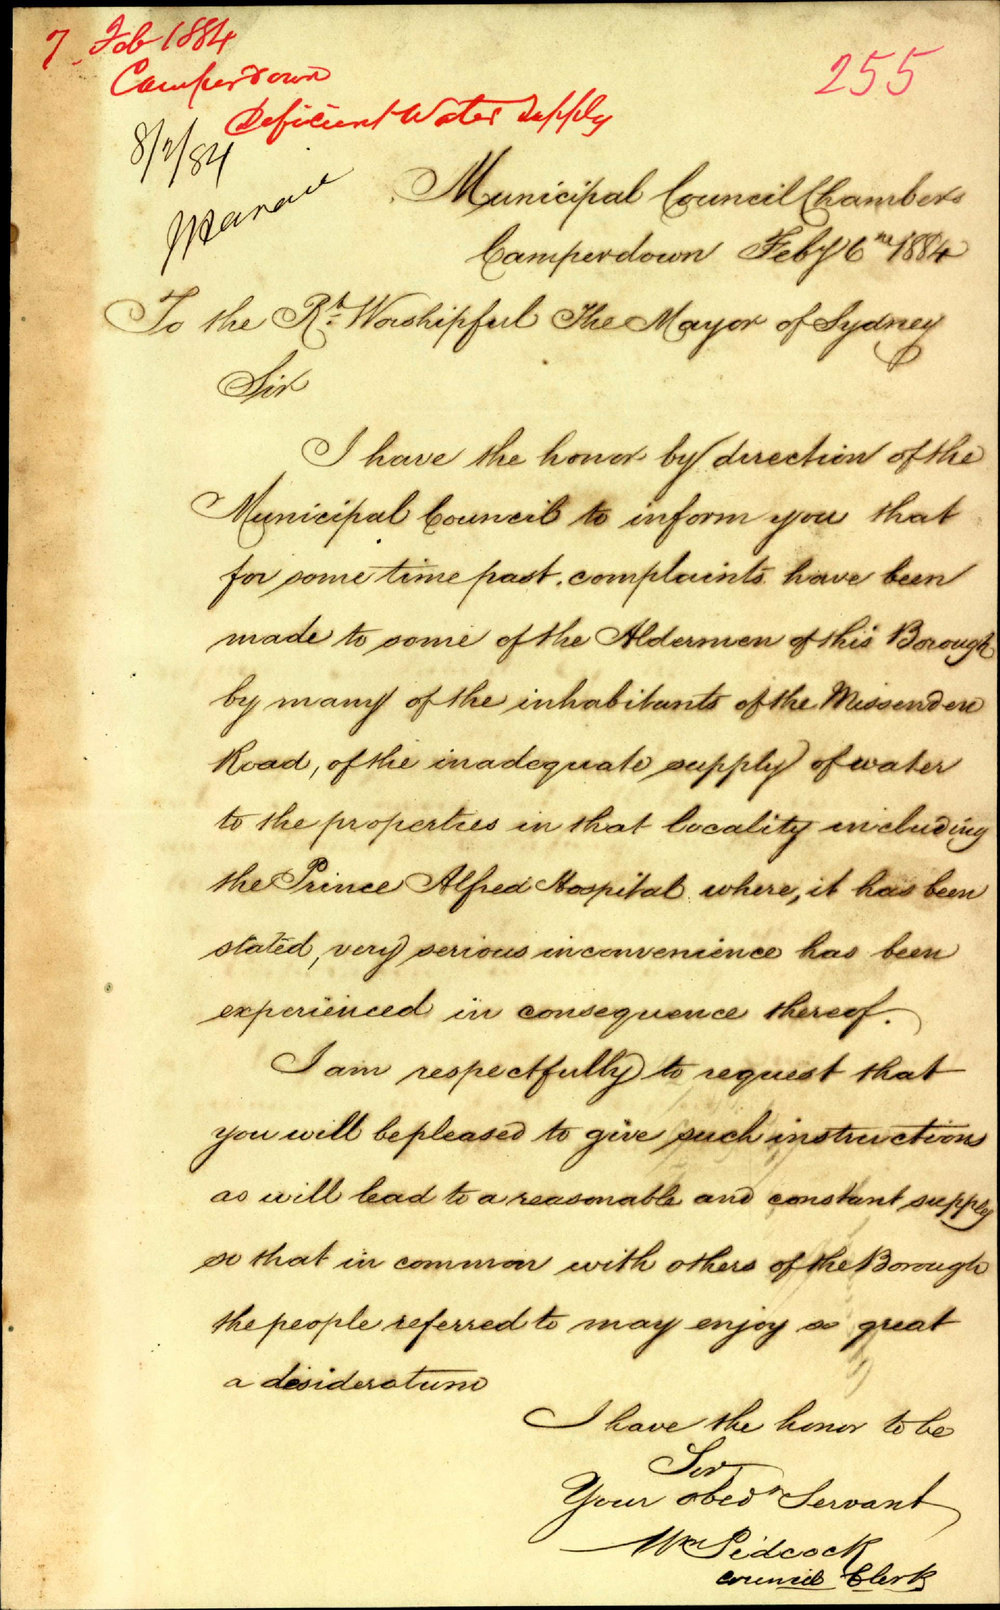 7. Feb 1884
255
Camperdown
Deficient Water Supply
8/2/84
Municipal Council Chambers
Camperdown Feby 6th 1884
To the Rt. Worshipful The Mayor of Sydney
Sir
I have the honor by direction of the
Municipal Council to inform you that
for some time past. complaints have been
made to some of the Aldermen of this Borough
by many of the inhabitants of the Missenden
Road, of the inadequate supply of water
to the properties in that locality including
the Prince Alfred Hospital where, it has been
stated, very serious inconvenience has been
experienced in consequence thereof.
I am respectfully to request that
you will be pleased to give such instructions
as will lead to a reasonable and constant supply
so that in common with others of the Borough
the people referred to may enjoy so great
a desideratum
I have the honor to be
Sir
Your obedt Servant
Wm Pidcock
Council Clerk